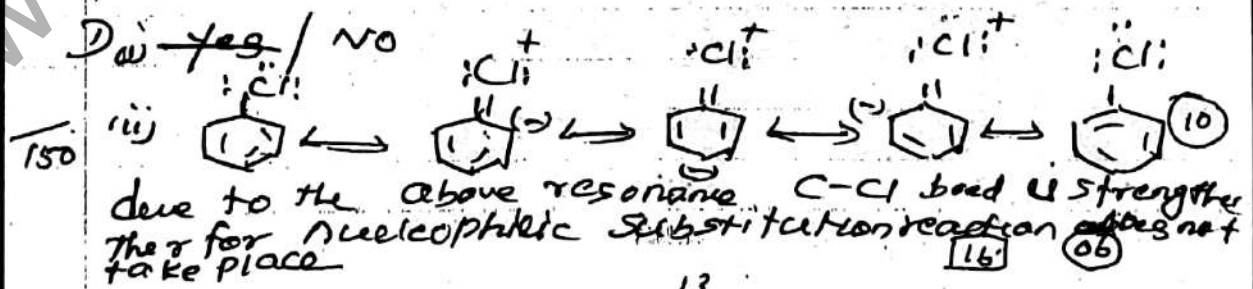 D (i) Yes / NO
:Cl: :Cl:+ :Cl:+ :Cl:+ :Cl:
150 (ii) (-) (-) (-) 10
due to the above resonance C-Cl bond is strengther
ther for nucleophilic Substitution reaction does not
take place 16 06
13